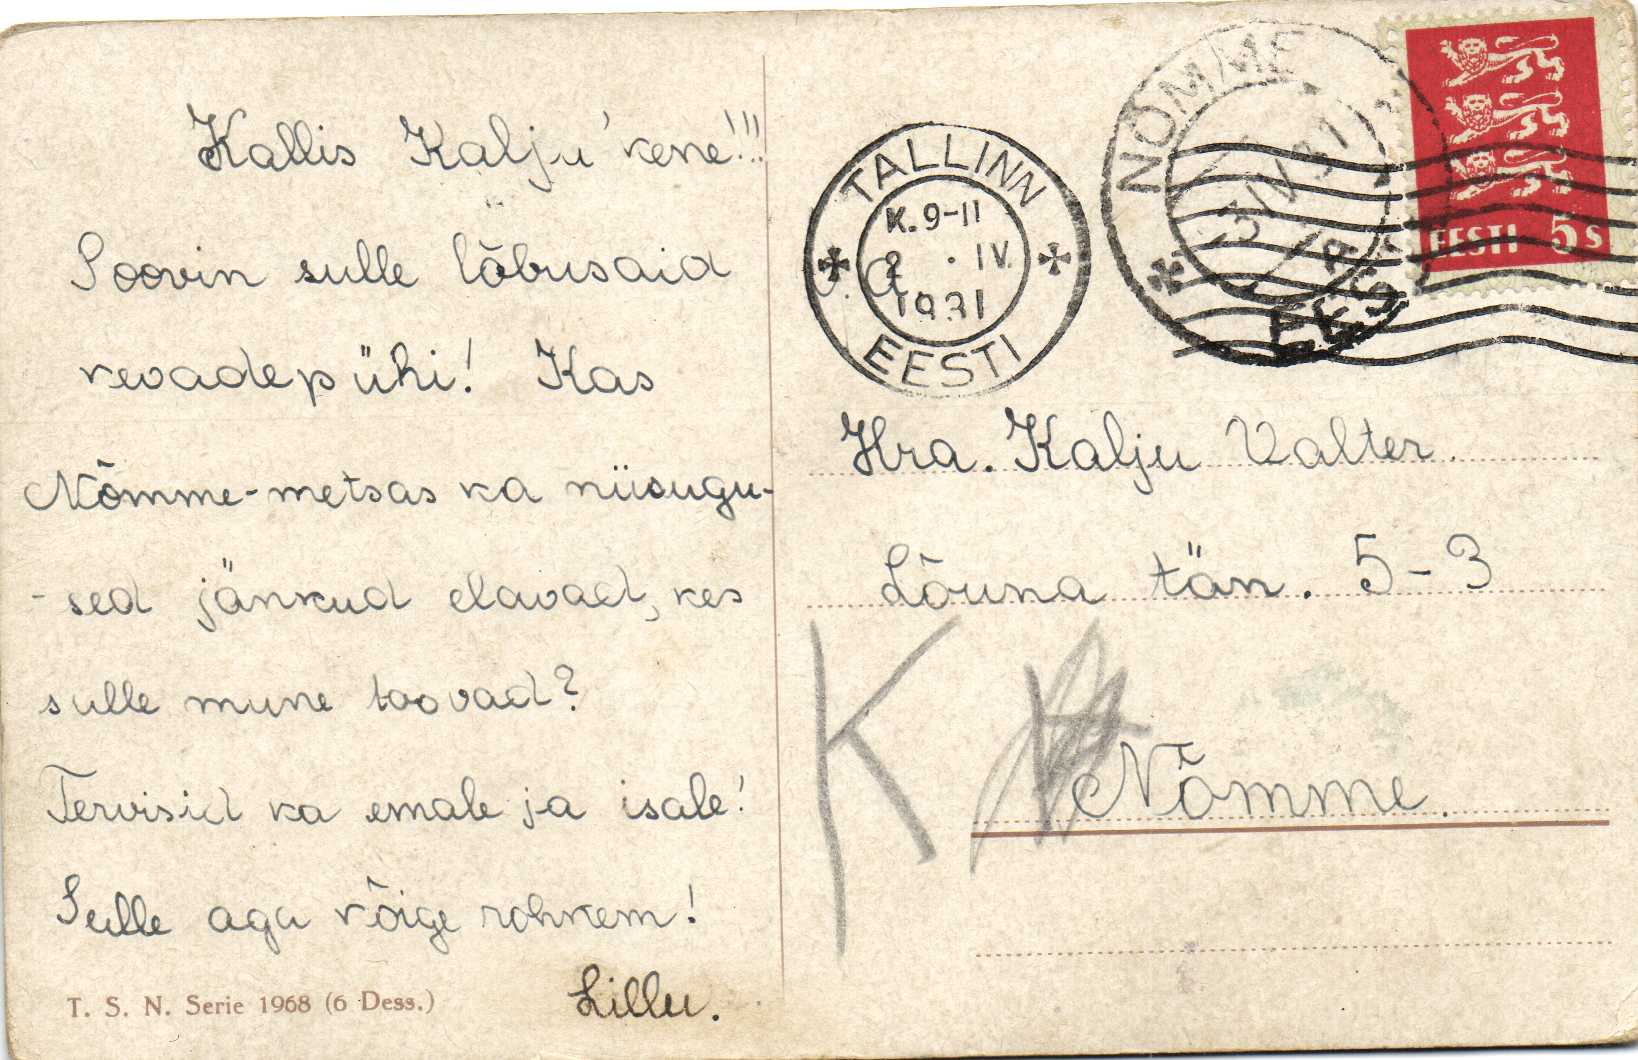 Kallis Kalju'kene!!!
Soovin sulle lõbusaid
kevadepühi! Kas
Nõmme-metsas ka niisugu-
-sed jänkud elavad, kes
sulle mune toovad?
Tervisid ka emale ja isale!
Sulle aga kõige rohkem!
Lillu.
T. S. N. Serie 1968 (6 Dess.)
TALLINN
K. 9-11
2 . IV.
1931
EESTI
NÕMME
3 IV 31
EESTI
EESTI 5 s
Hra. Kalju Valter.
Lõuna tän. 5-3
K
Nõmme.